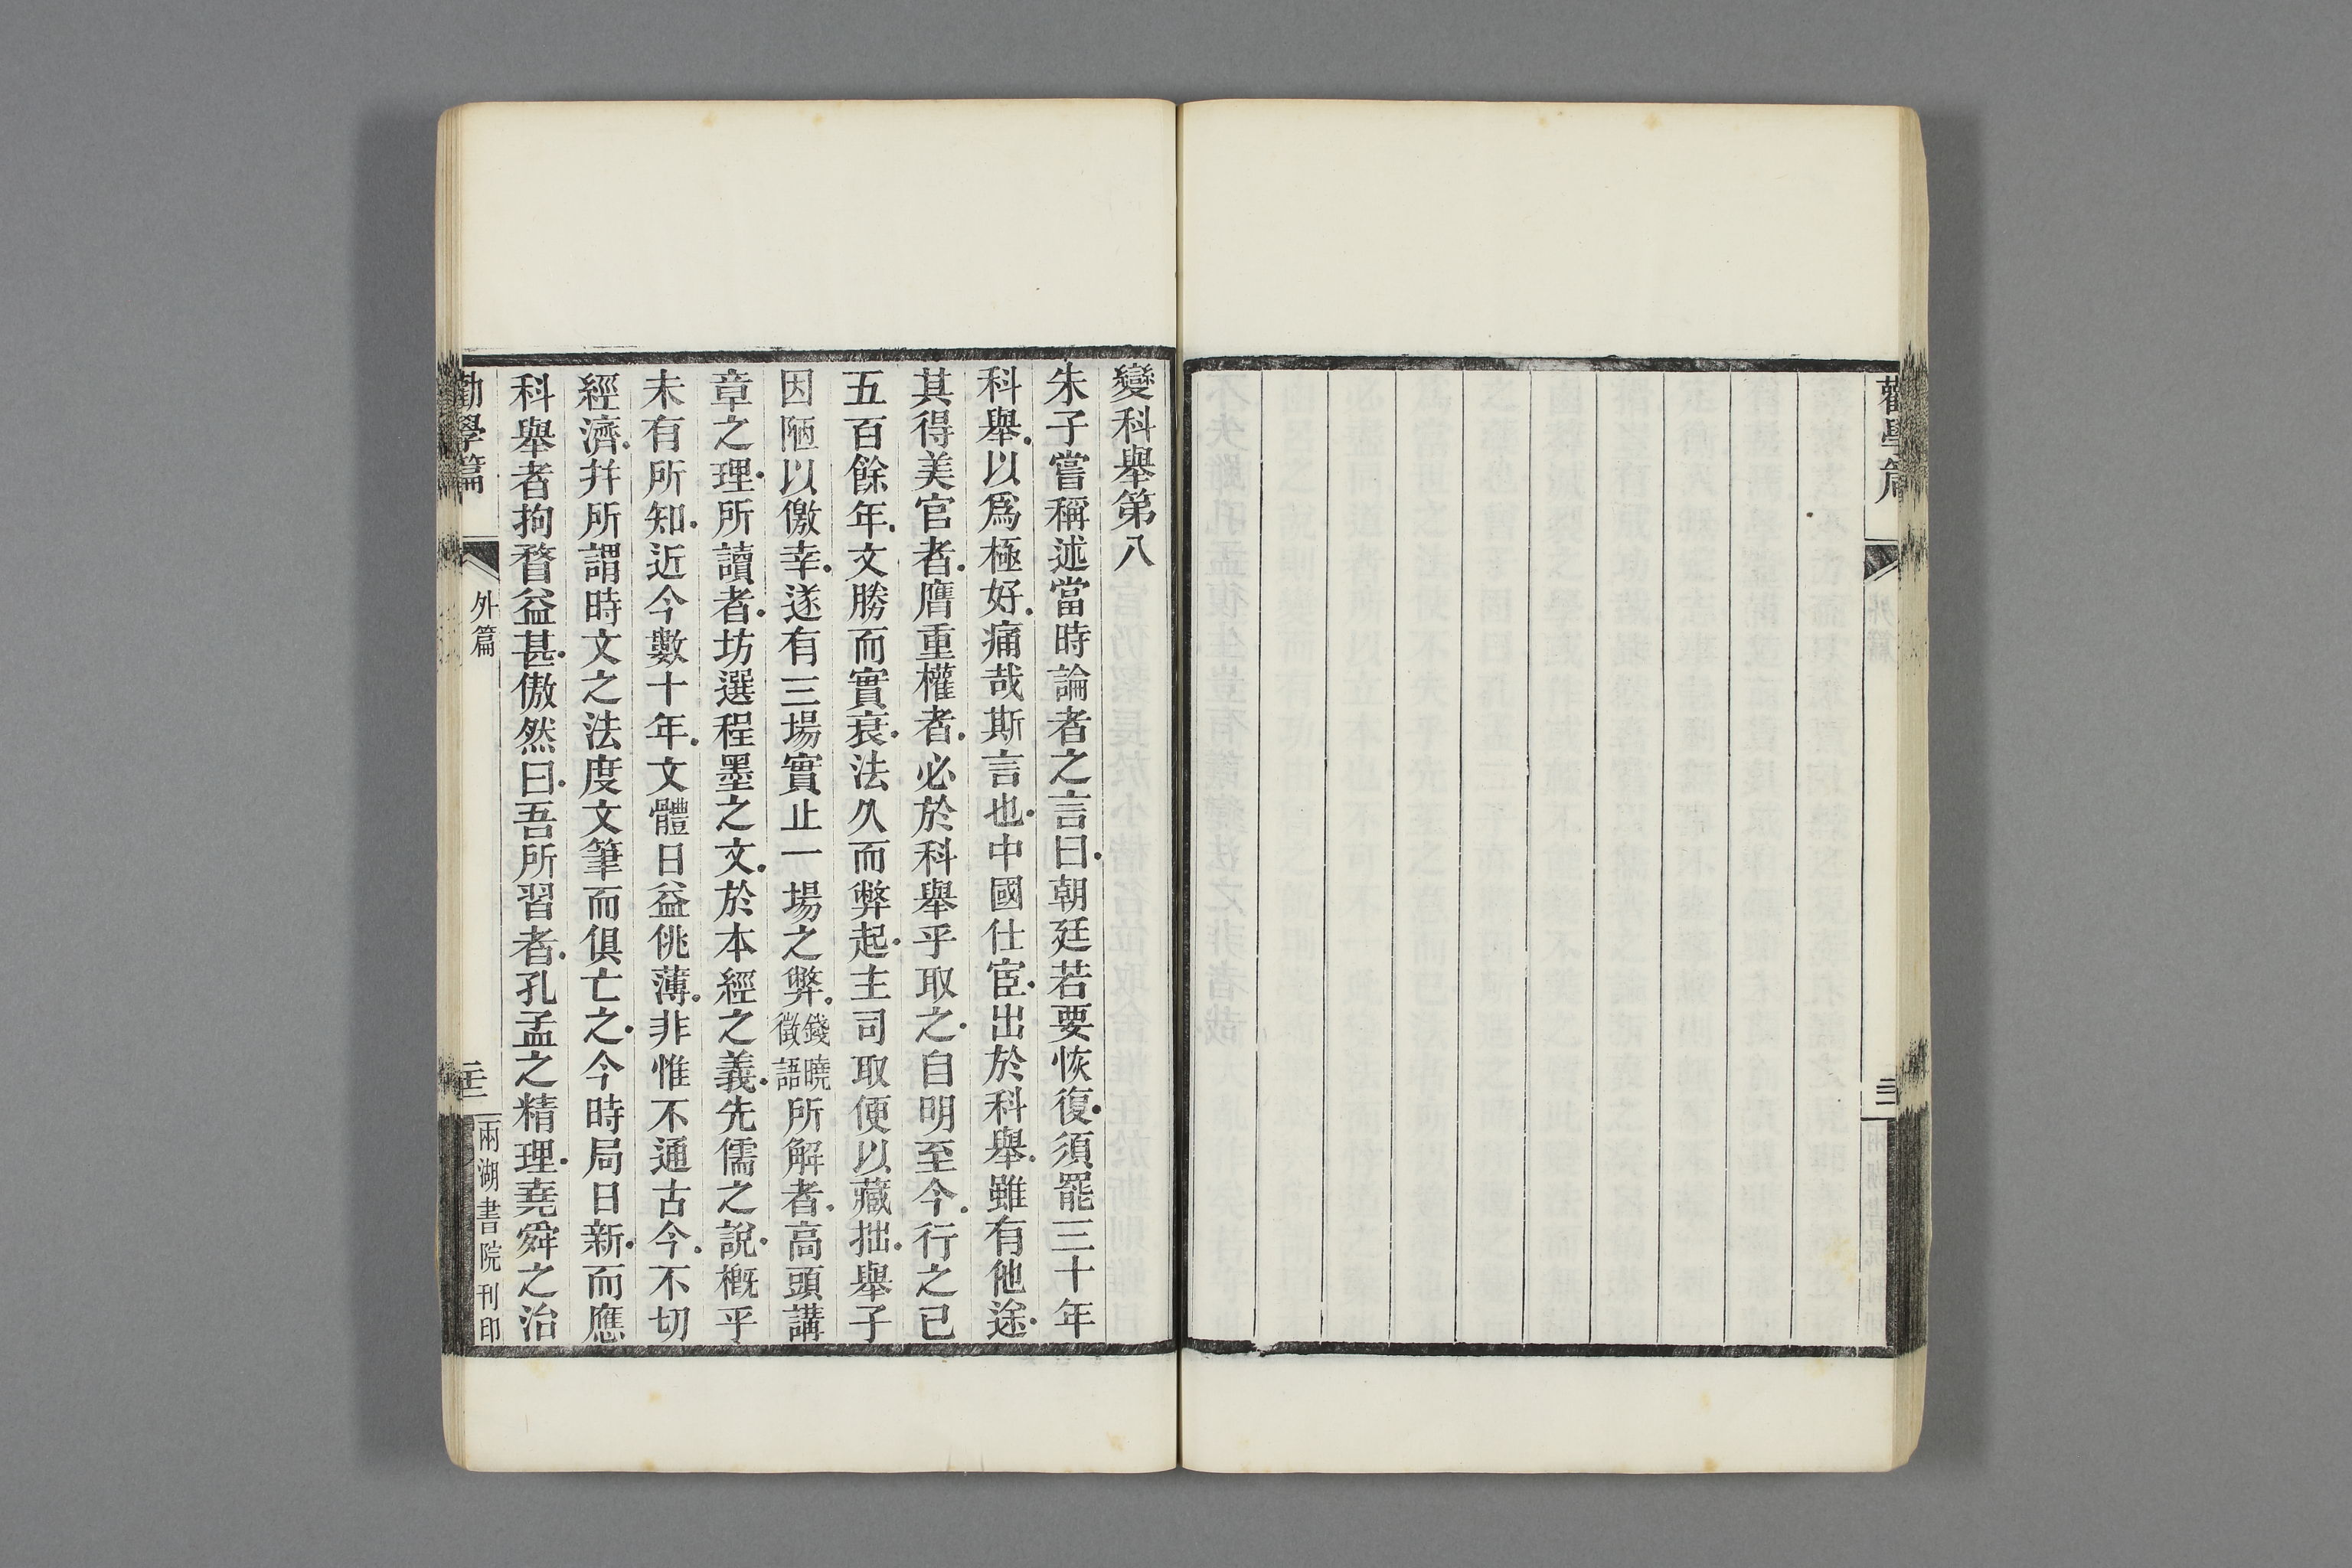 勸學篇
外篇
變科舉第八
朱子嘗稱述當時論者之言曰朝廷若要恢復須罷三十年
科舉以爲極好痛哉斯言也中國仕宦出於科舉雖有他途
其得美官者膺重權者必於科舉乎取之自明至今行之已
五百餘年文勝而實衰法久而弊起主司取便以藏拙舉子
因陋以僥幸遂有三場實止一場之弊錢曉徵語所解者高頭講
章之理所讀者坊選程墨之文於本經之義先儒之說槪乎
未有所知近今數十年文體日益佻薄非惟不通古今不切
經濟幷所謂時文之法度文筆而俱亡之今時局日新而應
科舉者拘瞀益甚傲然曰吾所習者孔孟之精理堯舜之治
勸學篇
外篇
兩湖書院刊印